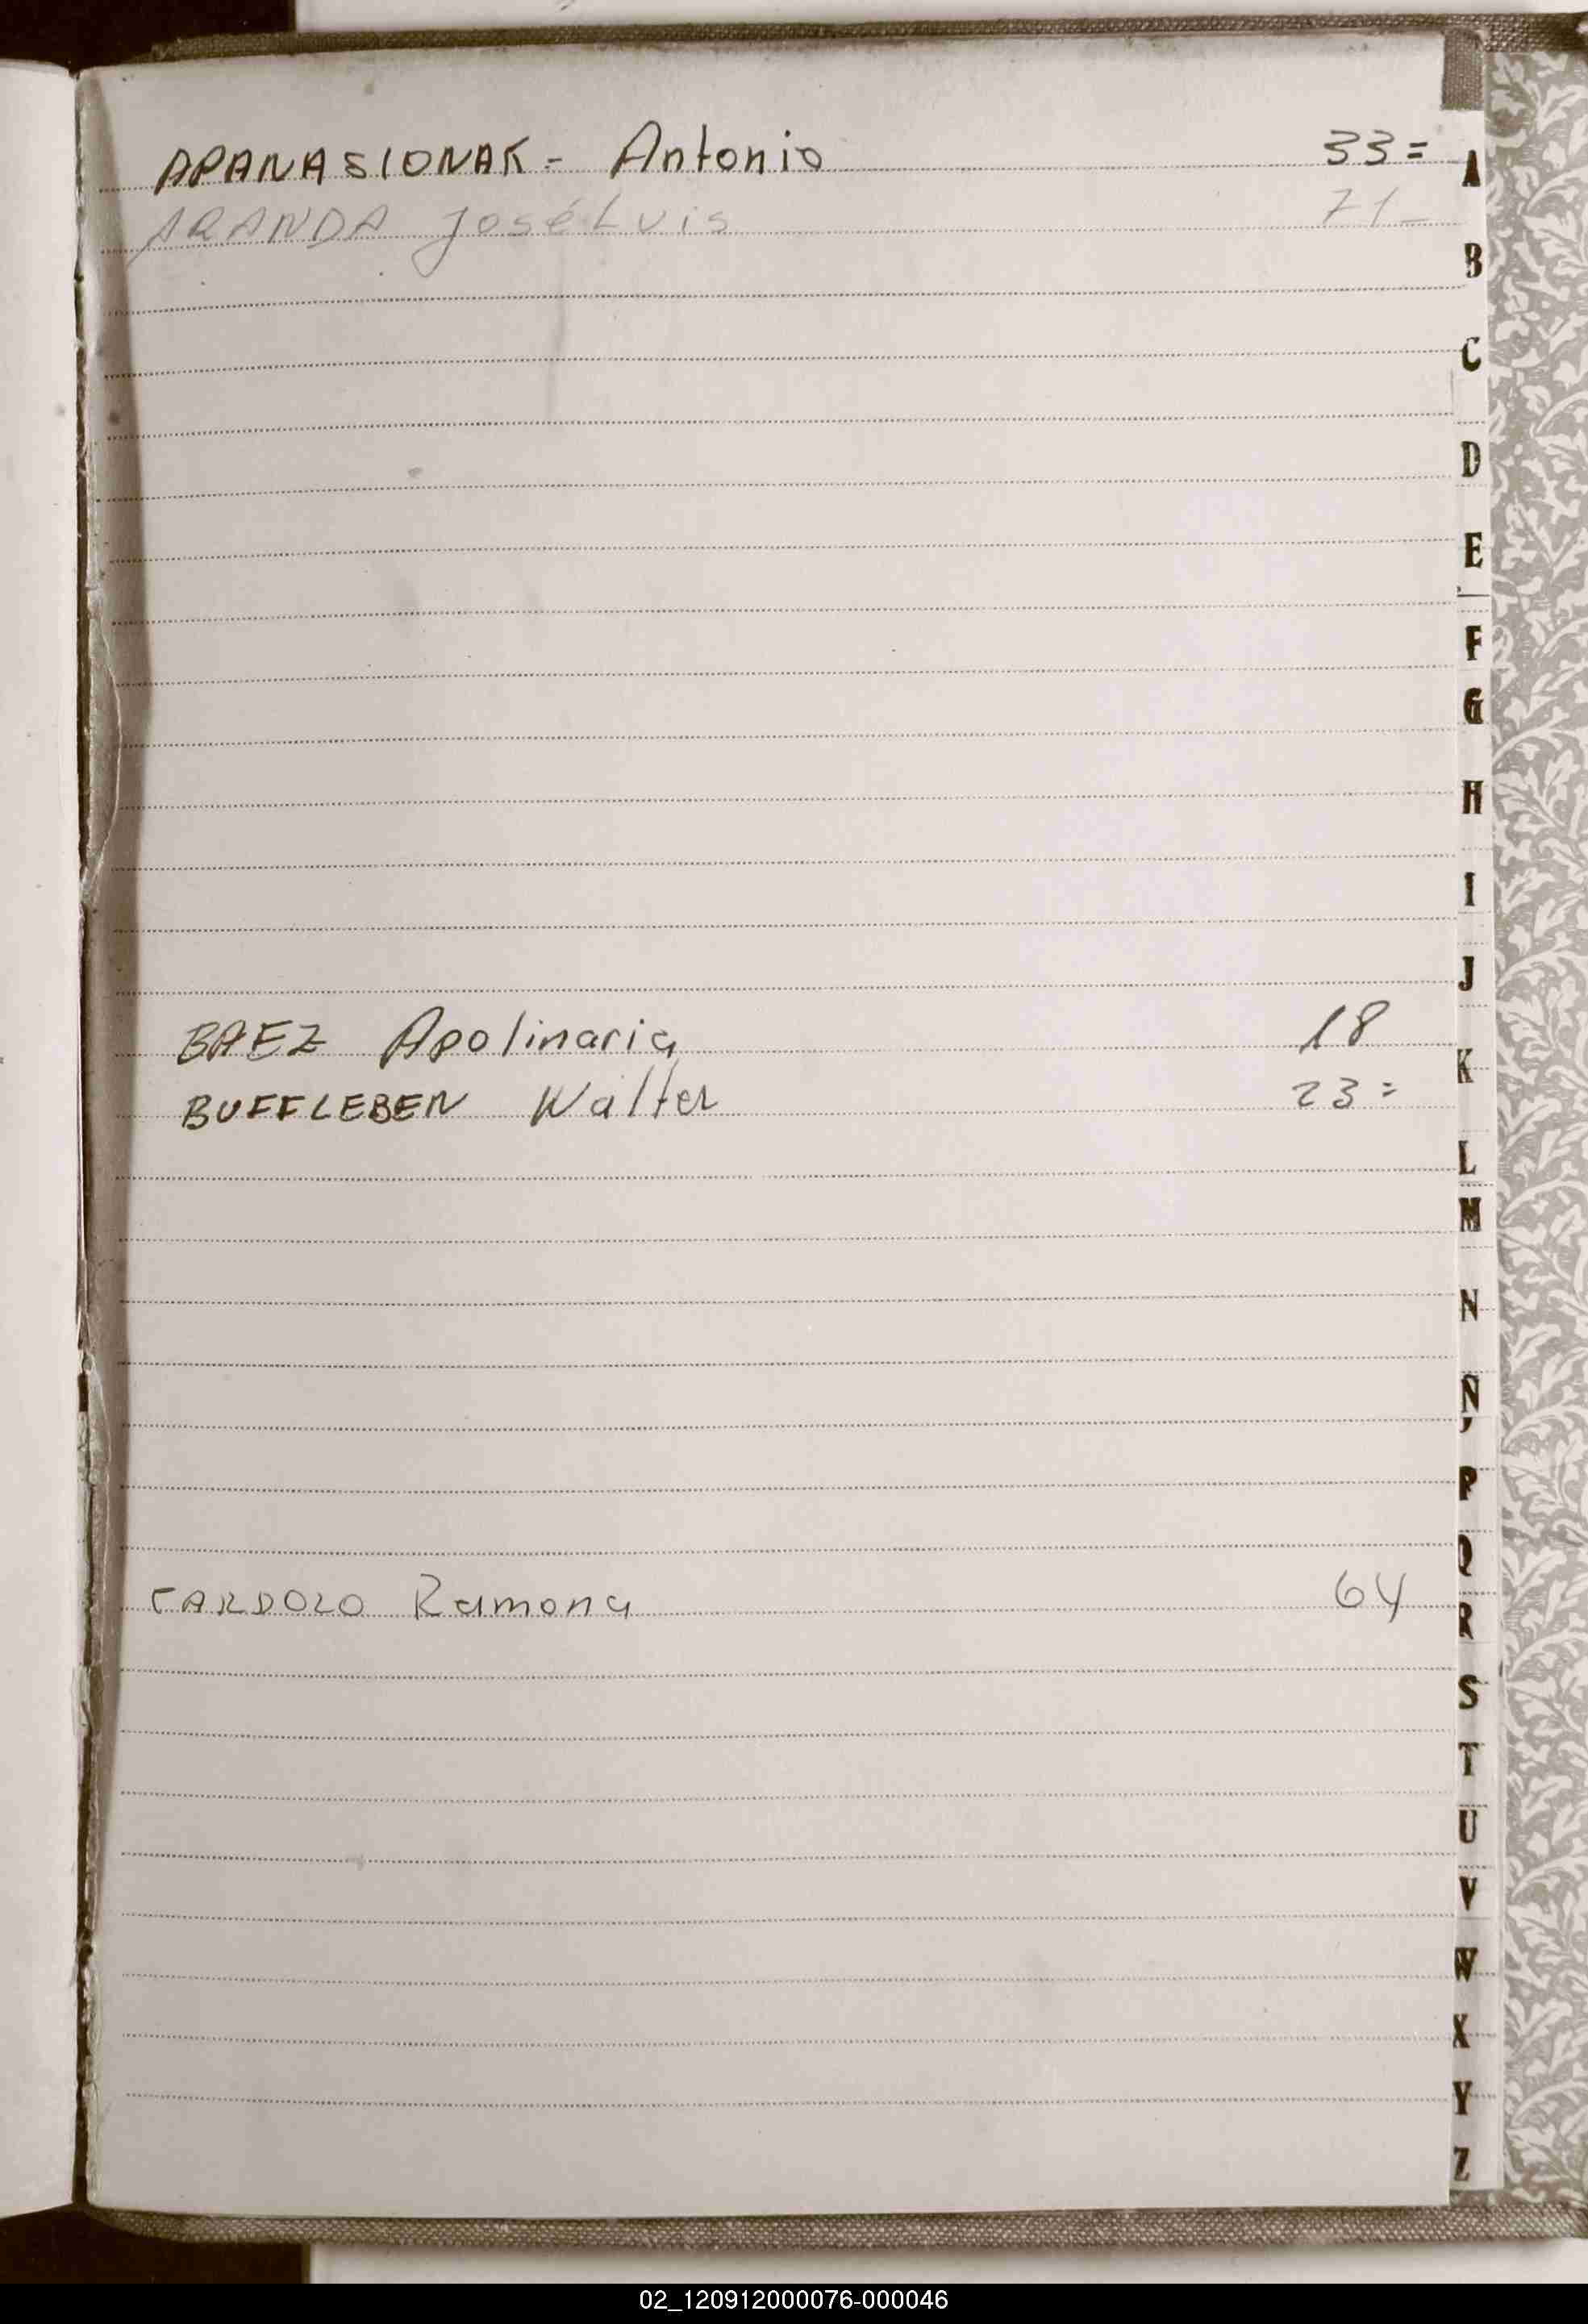 APANASIONAK = Antonio 33 =
ARANDA José Luis 71 -
BAEZ Apolinaria 18
BUFFLEBEN Walter 23 =
CARDOZO Ramona 64
A
B
C
D
E
F
G
H
I
J
K
L
M
N
Ñ
P
Q
R
S
T
U
V
W
X
Y
Z
02_120912000076-000046